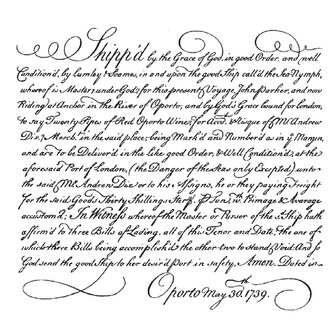 Shipp'd by the Grace of God, in good Order, and well
Condition'd, by Lumley & Soames, in and upon the good Ship call'd the Sea-Nymph,
whereof is Master, under God, for this present Voyage, John Parker, and now
Riding at Anchor in the River of Oporto, and by God's Grace bound for London,
to say Twenty Pipes of Red Oporto Wine, for Acct & Risque of Mr Andrew
Dix, Merch. in the said place; being Mark'd and Number'd as in ye Margin,
and are to be Deliver'd in the like good Order, & Well Condition'd, at the
aforesaid Port of London, (the Danger of the Seas only Excepted) unto
the said Mr Andrew Dix or to his Assigns, he or they paying Freight
for the said Goods Thirty Shillings Sterg. P Tun, wth Primage & Average
accustom'd; In Witness whereof the Master or Purser of the sd Ship hath
affirm'd to Three Bills of Lading, all of this Tenor and Date, the one of
which three Bills being accomplish'd the other two to stand Void. And so
God send the good Ship to her desir'd Port in safety, Amen. Dated in
Oporto May 30th. 1739.